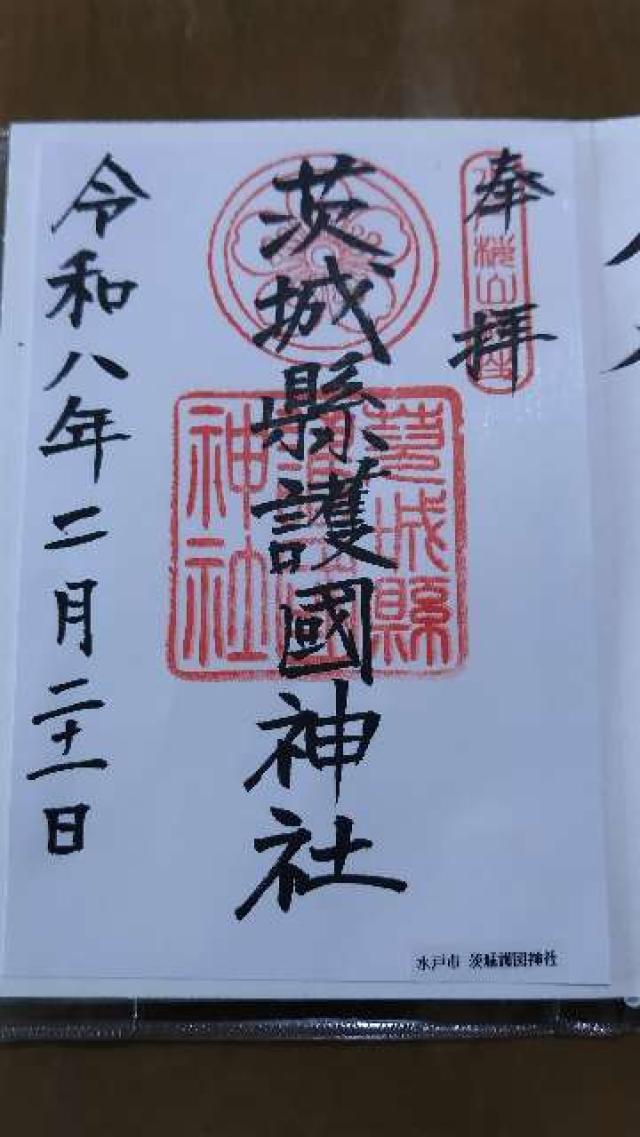 奉拝
茨城縣護國神社
茨城縣
護國
神社
令和八年二月二十一日
水戸市 茨城護国神社